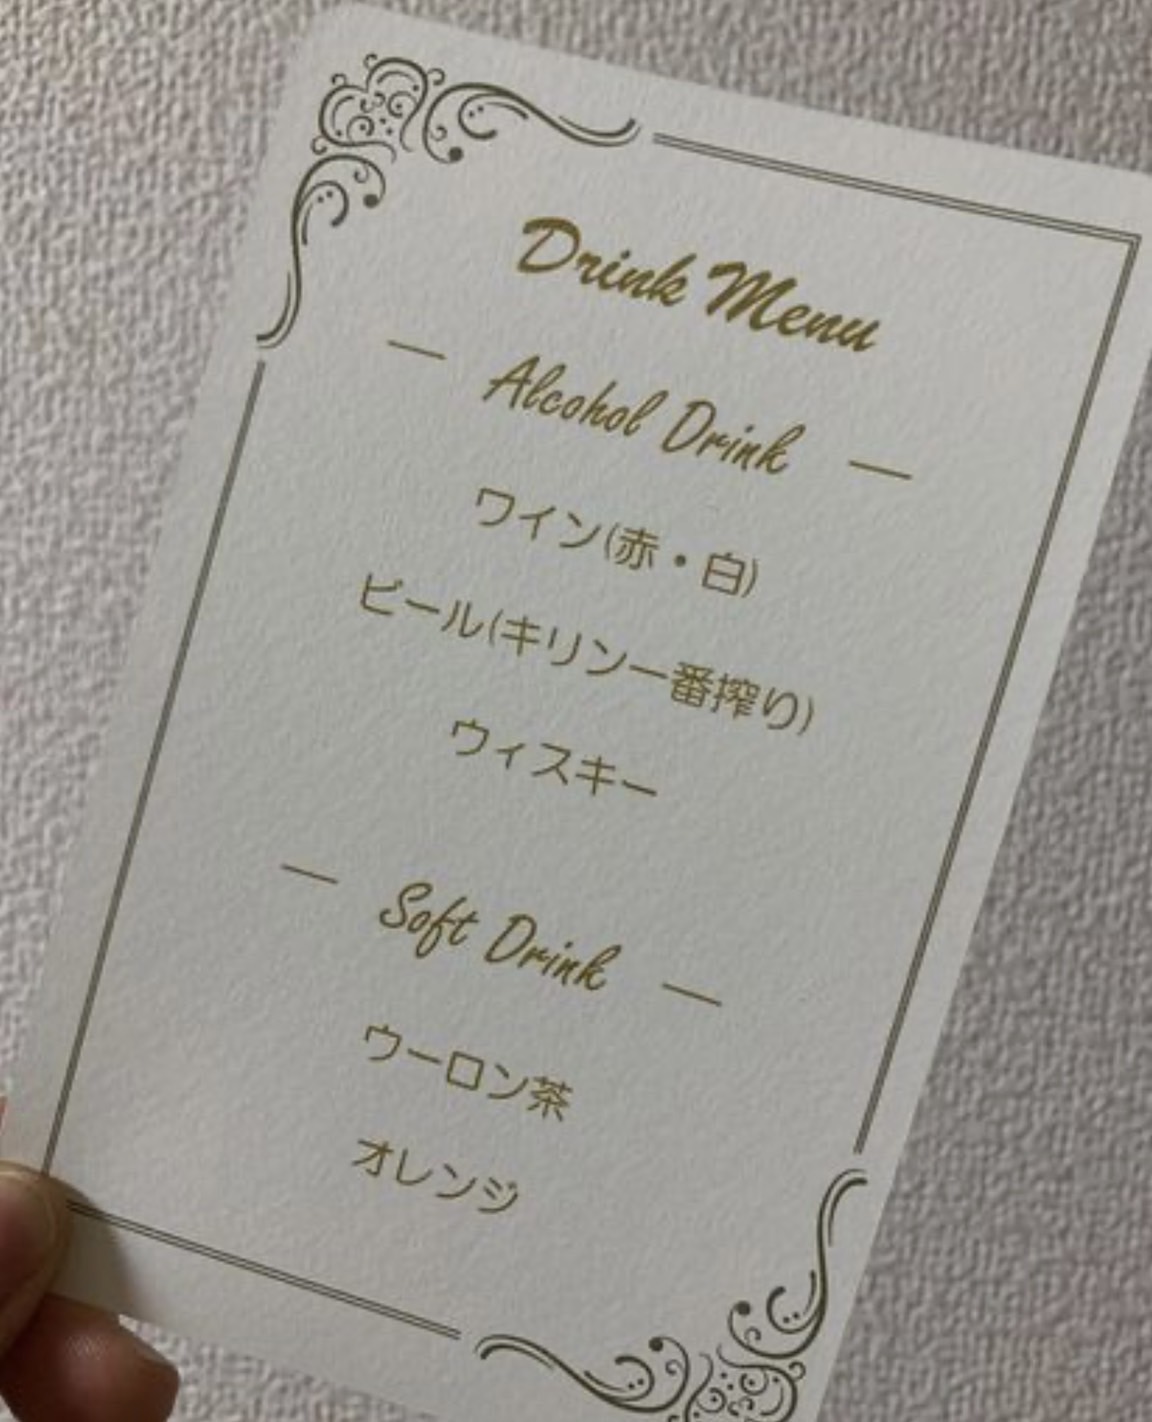 Drink Menu
— Alcohol Drink —
ワイン(赤・白)
ビール(キリン一番搾り)
ウィスキー
— Soft Drink —
ウーロン茶
オレンジ